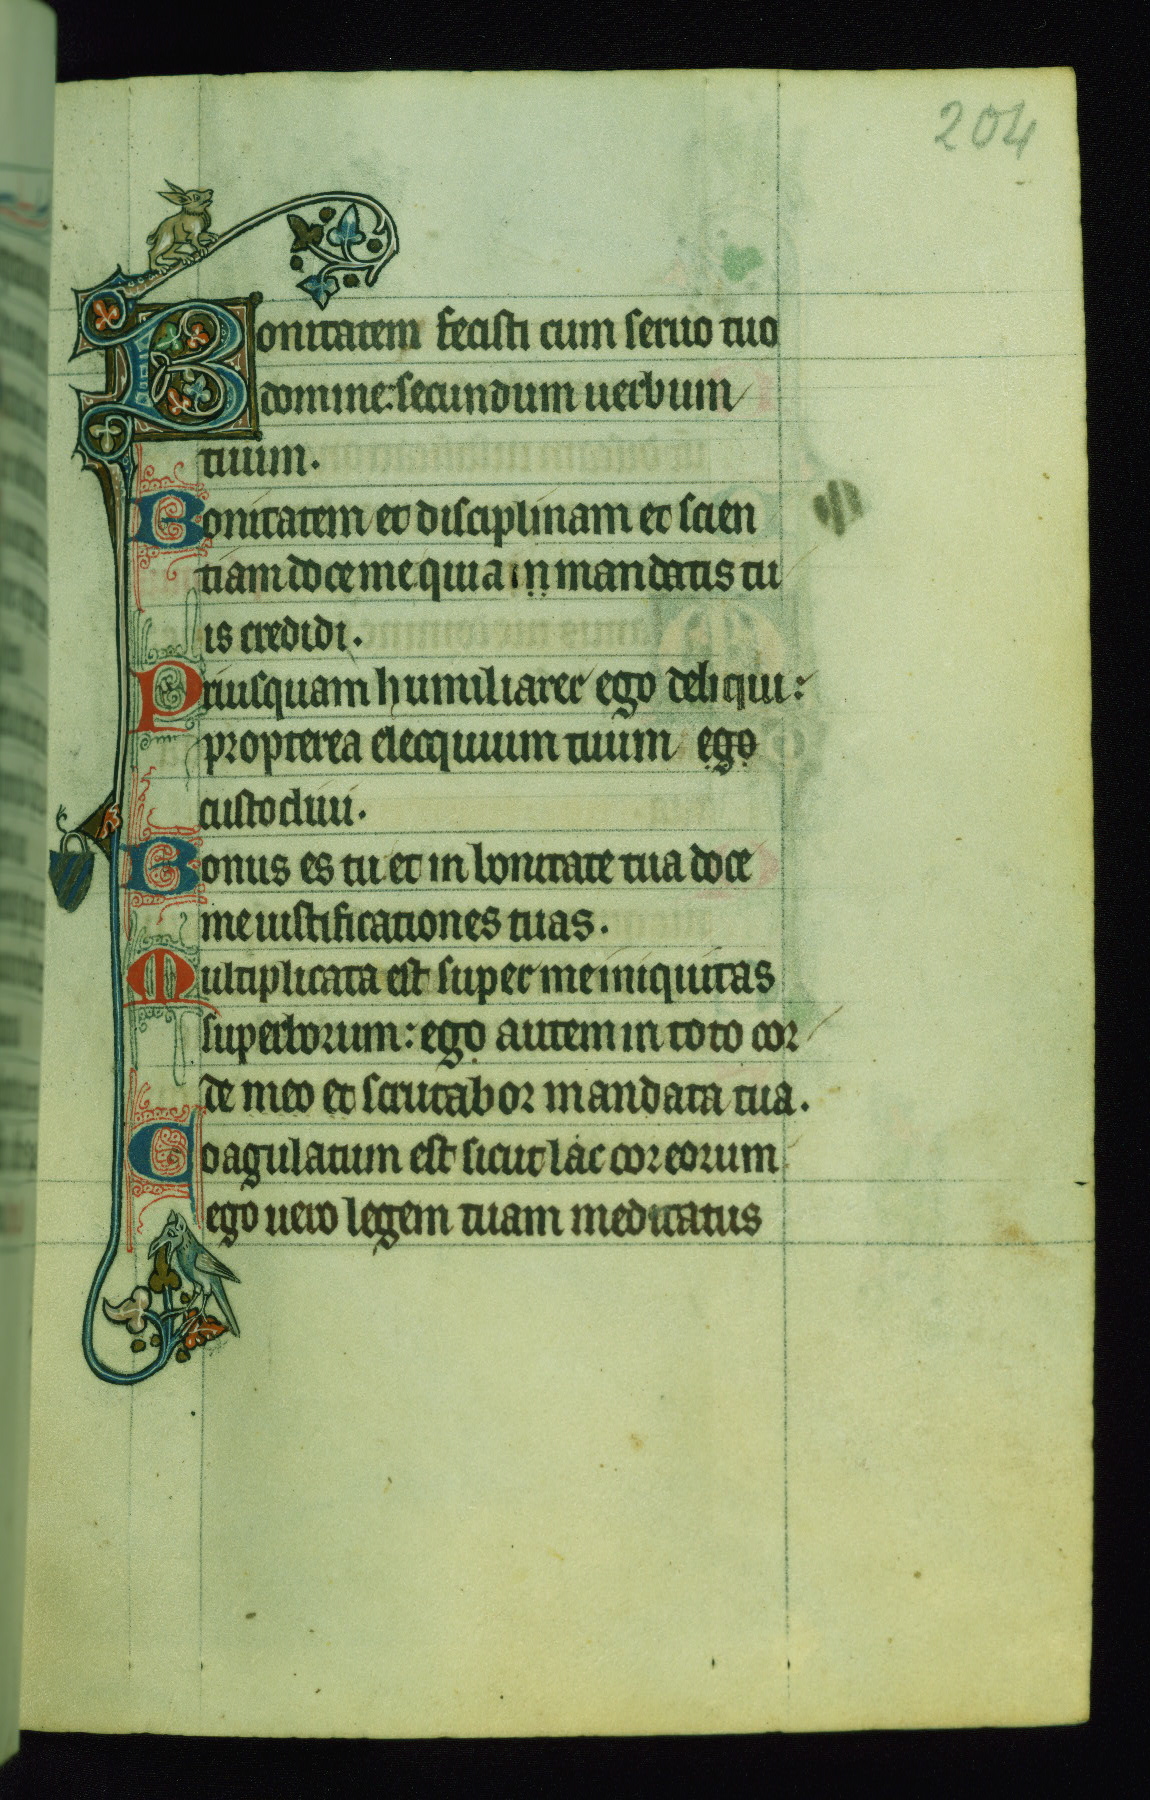 204
Bonitatem fecisti cum seruo tuo
domine: secundum uerbum
tuum.
Bonitatem et disciplinam et scien
tiam doce me quia in mandatis tu
is credidi.
Priusquam humiliarer ego deliqui:
propterea elecquium tuum ego
custodiui.
Bonus es tu et in bonitate tua doce
me iustificationes tuas.
Multiplicata est super me iniquitas
superborum: ego autem in toto cor
de meo et scrutabor mandata tua.
Coagulatum est sicut lac cor eorum
ego uero legem tuam meditatus